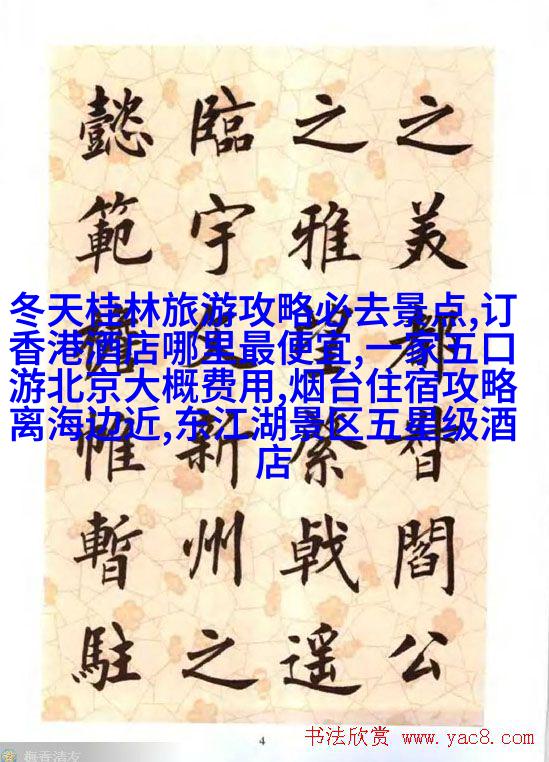 之美都督閻公
之雅望棨戟遥
臨宇文新州之
懿範襜帷暫駐
冬天桂林旅游攻略必去景点,订
香港酒店哪里最便宜,一家五口
游北京大概费用,烟台住宿攻略
离海边近,东江湖景区五星级酒
店
4
书法欣赏 www.yac8.com